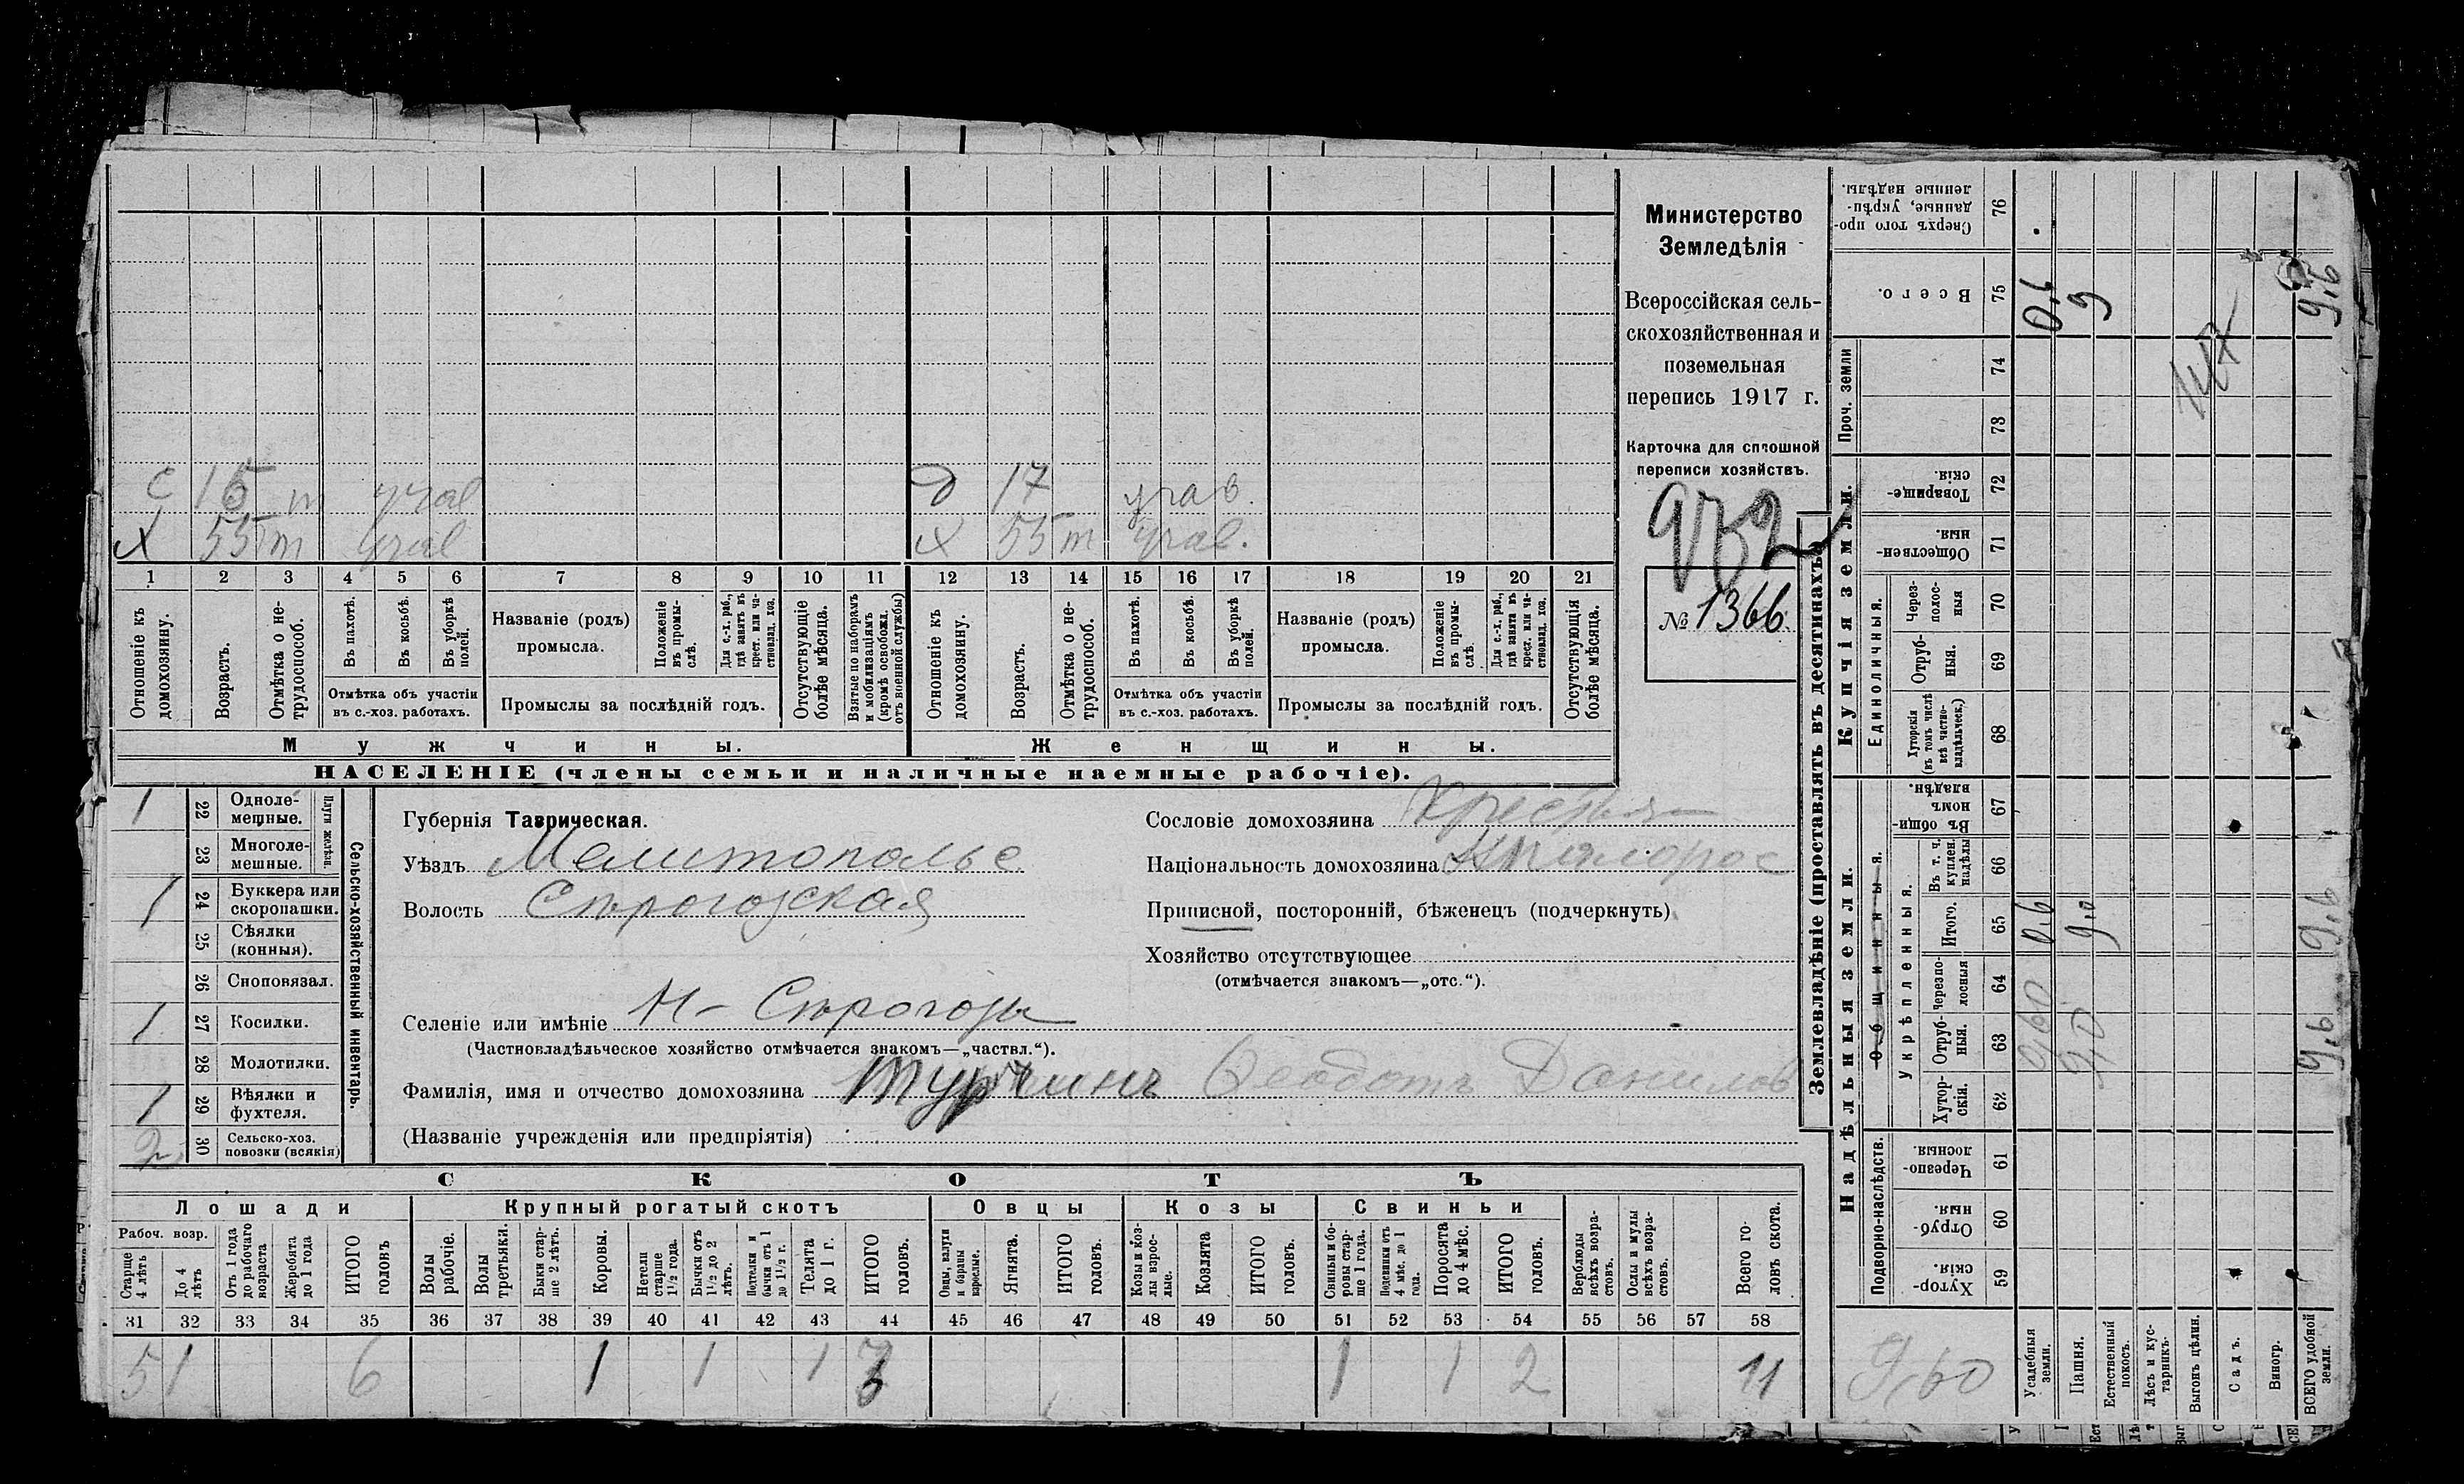 Министерство
Земледѣлія
Всероссійская сель-
скохозяйственная и
поземельная
перепись 1917 г.
Карточка для сплошной
переписи хозяйствъ.
932
№ 1366
с 15 m участв д 17 учав.
х 55 m учав х 55 m учав.
1 2 3 4 5 6 7 8 9 10 11 12 13 14 15 16 17 18 19 20 21
Отношеніе къ домохозяину.
Возрастъ.
Отмѣтка о не-трудоспособ.
Въ пахотѣ.
Въ косьбѣ.
Въ уборкѣ полей.
Отмѣтка объ участіи
въ с.-хоз. работахъ.
Названіе (родъ)
промысла.
Положеніе въ промы-слѣ.
Для с.-х. раб., гдѣ занятъ въ крест. или ча-стновлад. хоз.
Промыслы за послѣдній годъ.
Отсутствующіе болѣе мѣсяца.
Взятые по наборамъ и мобилизаціямъ (кромѣ освобожд. отъ военной службы)
Отношеніе къ домохозяину.
Возрастъ.
Отмѣтка о не-трудоспособ.
Въ пахотѣ.
Въ косьбѣ.
Въ уборкѣ полей.
Отмѣтка объ участіи
въ с.-хоз. работахъ.
Названіе (родъ)
промысла.
Положеніе въ промы-слѣ.
Для с.-х. раб., гдѣ занята въ крест. или ча-стновлад. хоз.
Промыслы за послѣдній годъ.
Отсутствующія болѣе мѣсяца.
Мужчины. Женщины.
НАСЕЛЕНІЕ (члены семьи и наличные наемные рабочіе).
Сельско-хозяйственный инвентарь.
Плуги желѣзн.
1 22 Одноле-мешные.
23 Многоле-мешные.
1 24 Буккера или скоропашки.
25 Сѣялки (конныя).
26 Сноповязал.
1 27 Косилки.
28 Молотилки.
1 29 Вѣялки и фухтеля.
2 30 Сельско-хоз. повозки (всякія)
Губернія Таврическая.
Уѣздъ Мелитопольс.
Волость Сѣрогозская
Селеніе или имѣніе Н-Сѣрогозы
(Частновладѣльческое хозяйство отмѣчается знакомъ—„частвл.“).
Фамилія, имя и отчество домохозяина Турчинъ Феодотъ Данилов
(Названіе учрежденія или предпріятія)
Сословіе домохозяина Крестьян
Національность домохозяина Малорос
Приписной, посторонній, бѣженецъ (подчеркнуть)
Хозяйство отсутствующее
(отмѣчается знакомъ—„отс.“).
СКОТЪ
Лошади Крупный рогатый скотъ Овцы Козы Свиньи
Рабоч. возр.
Старше 4 лѣтъ
До 4 лѣтъ
Отъ 1 года до рабочаго возраста
Жеребята до 1 года
ИТОГО головъ
Волы рабочіе.
Волы третьяки.
Быки стар-ше 2 лѣтъ.
Коровы.
Нетели старше 1½ года.
Бычки отъ 1½ до 2 лѣтъ.
Подтелки и бычки отъ 1 до 1½ г.
Телята до 1 г.
ИТОГО головъ.
Овцы, валухи и бараны взрослые.
Ягнята.
ИТОГО головъ.
Козы и коз-лы взрос-лые.
Козлята
ИТОГО головъ.
Свиньи и бо-ровы стар-ше 1 года.
Подсвинки отъ 4 мѣс. до 1 года.
Поросята до 4 мѣс.
ИТОГО головъ.
Верблюды всѣхъ возра-стовъ.
Ослы и мулы всѣхъ возра-стовъ.
Всего го-ловъ скота.
31 32 33 34 35 36 37 38 39 40 41 42 43 44 45 46 47 48 49 50 51 52 53 54 55 56 57 58
5 1 6 1 1 1 3 1 1 2 11
Землевладѣніе (проставлять въ десятинахъ)
Надѣльныя земли. Купчія земли.
Подворно-наслѣдств.
Общинныя.
Укрѣпленныя.
Единоличныя.
Проч. земли
59 Хутор-скія.
60 Отруб-ныя.
61 Черезпо-лосныя
62 Хутор-скія.
63 Отруб-ныя.
64 Черезпо-лосныя
65 Итого.
66 Въ т. ч. куплен. надѣлы
67 Въ общи-номъ владѣн.
68 Хуторскія (въ томъ числѣ всѣ частно-владѣльческ.)
69 Отруб-ныя.
70 Через-полос-ныя
71 Обществен-ныя.
72 Товарище-скія.
73
74
75 Всего.
76 Сверхъ того про-данные, укрѣп-ленные надѣлы.
Усадебныя земли. 0,60 0,6 0,6
Пашня. 9,0 9,0 9
Естественный покосъ.
Лѣсъ и кус-тарникъ.
Выгонъ цѣлин.
Садъ.
Виногр.
ВСЕГО удобной земли. 9,6 9,6 9,6
9,60